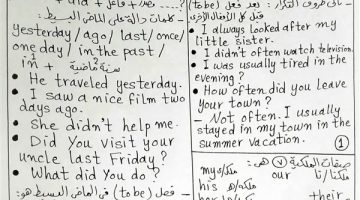 كلمات دالة على الماضي البسيط:
yesterday / ago / last / once /
one day / in the past /
in + سنة ماضية
• He traveled yesterday.
• I saw a nice film two
days ago.
• She didn't help me.
• Did You visit your
uncle last Friday?
• What did you do?
فعل (to be) في الماضي البسيط هو:
ظروف التكرار: بعد فعل (to be)
قبل كل الأفعال الأخرى
• I always looked after my
little sister.
• I didn't often watch television.
• I was usually tired in the
evening?
• How often did you leave
your town?
- Not often. I usually
stayed in my town in the
summer vacation.
1
صفات الملكية ٧ هي:
my ملكي our ملكنا
his ملكه their